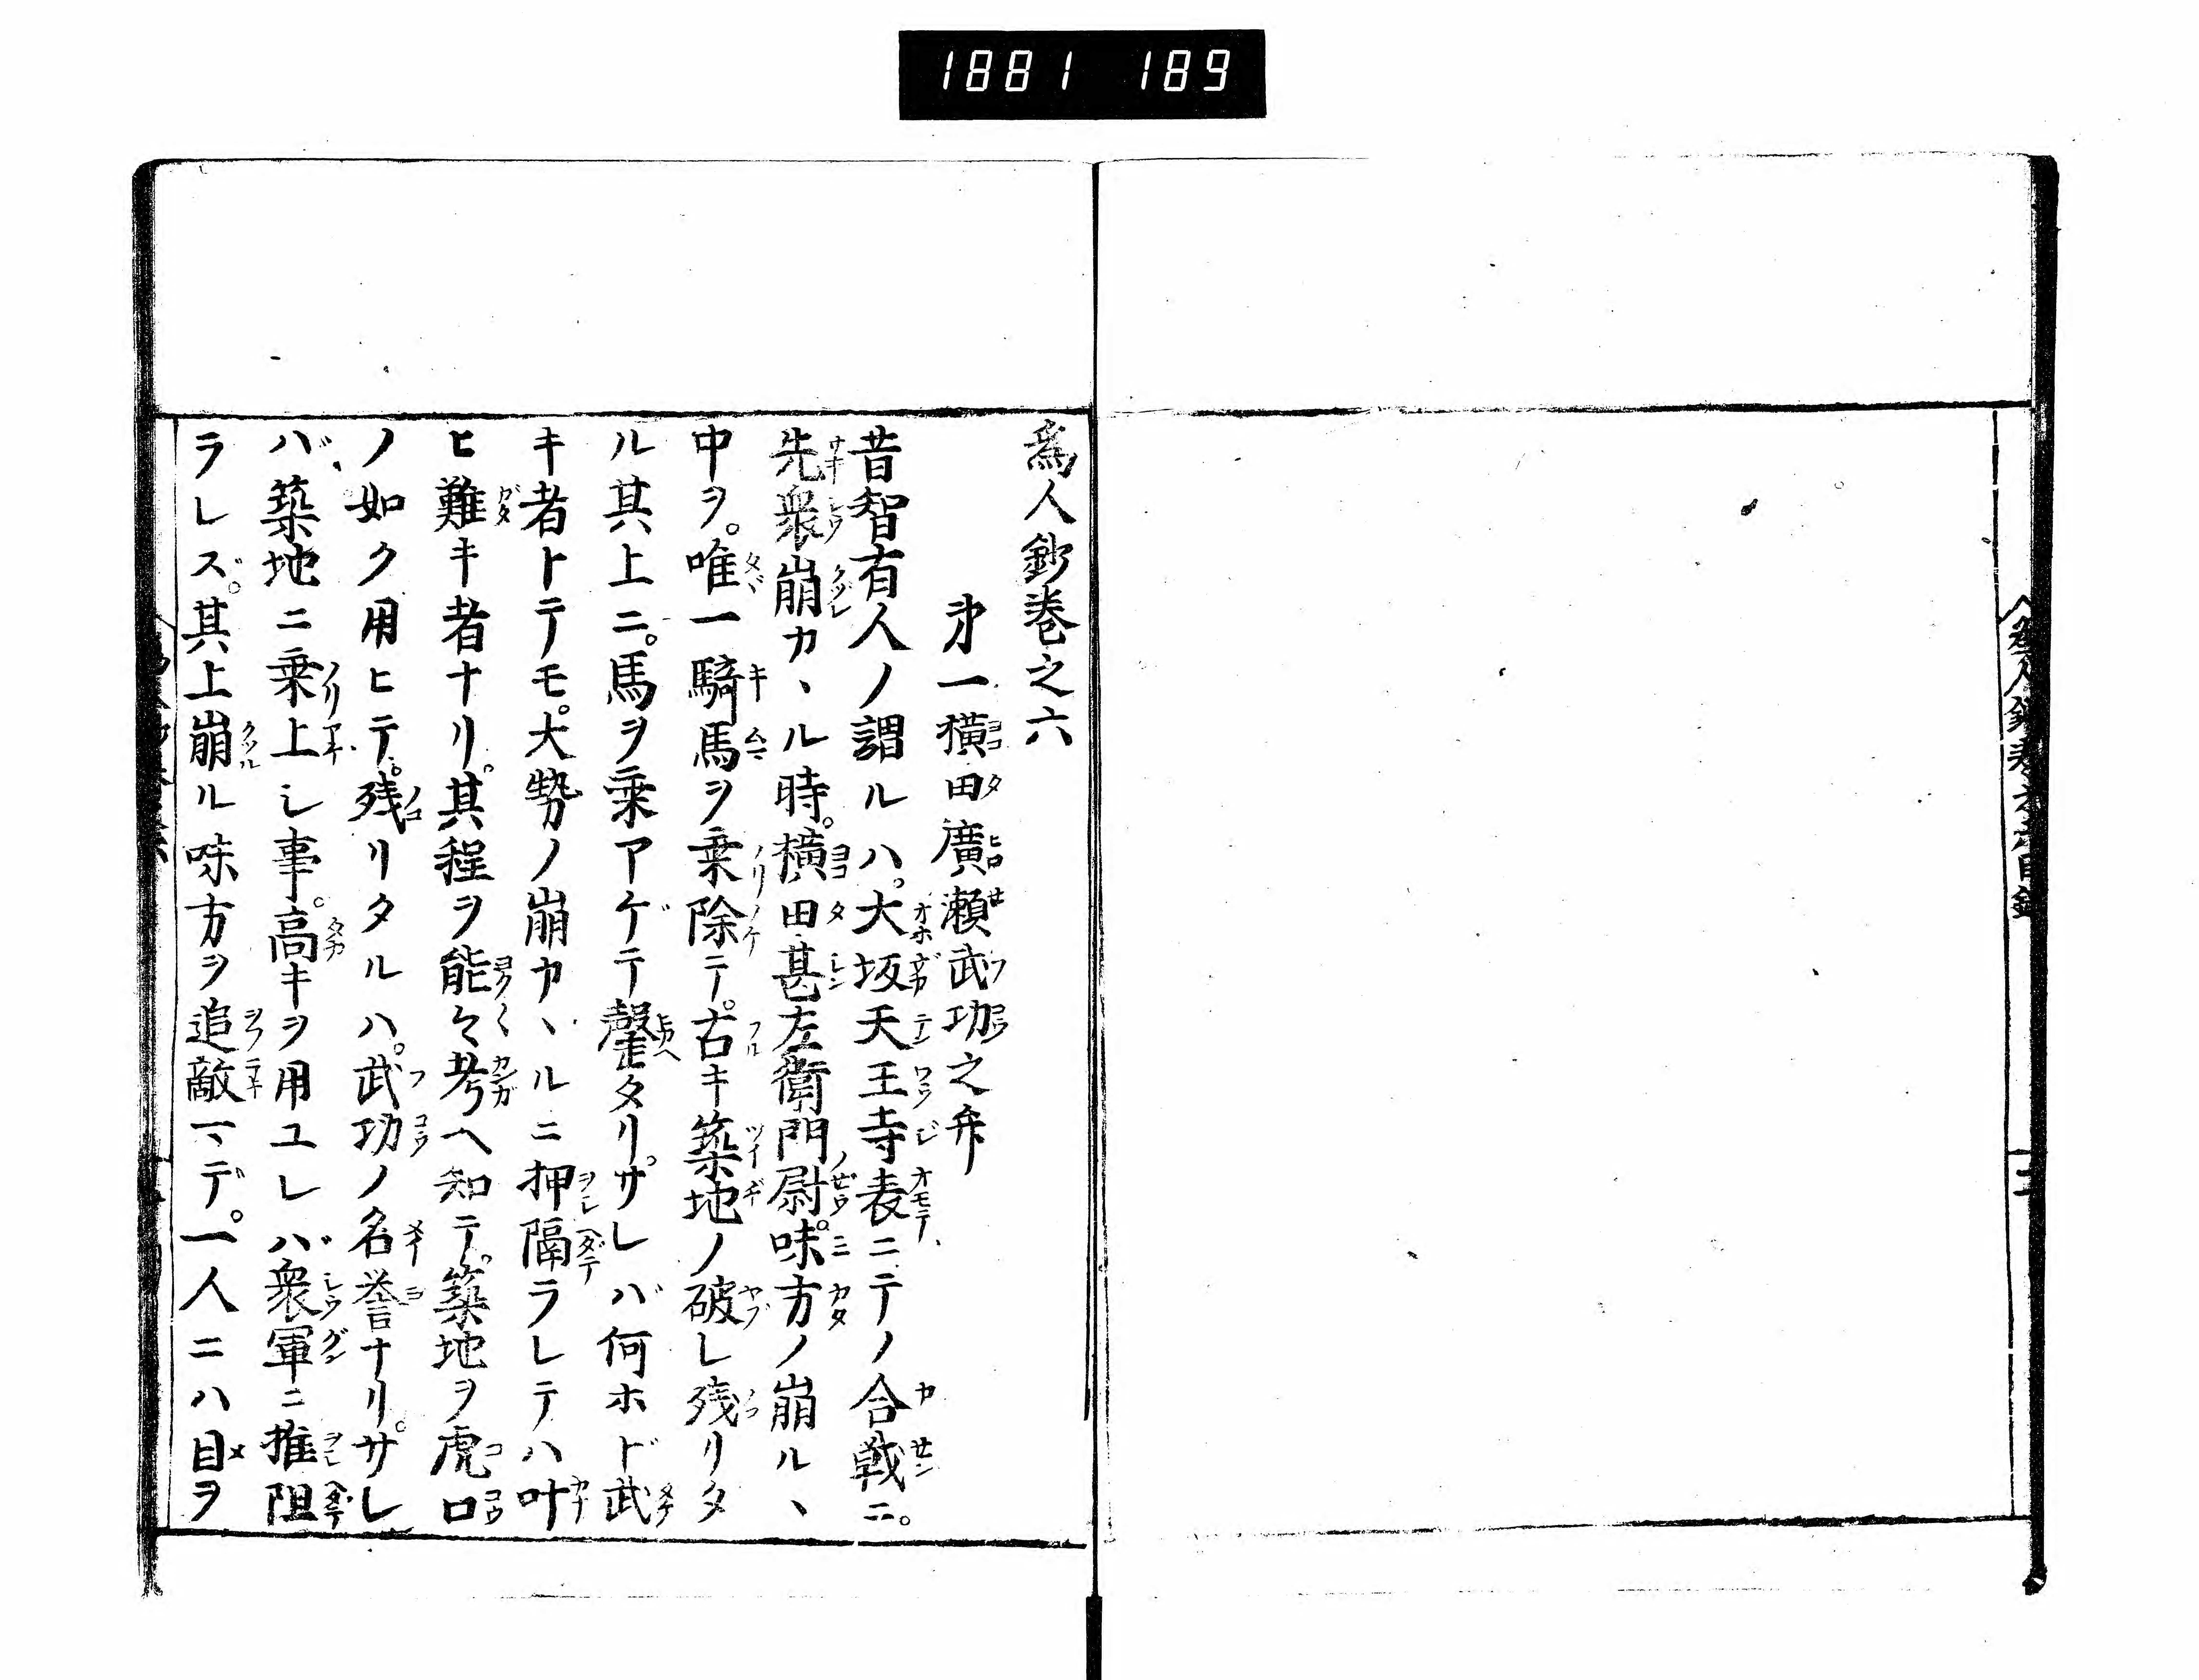 1881 189
為人鈔巻之六
㐧一横田廣瀬武功之弁
昔智有人ノ謂ルハ。大坂天王寺表ニテノ合戦ニ。
先衆崩カヽル時。横田甚左衛門尉。味方ノ崩ルヽ
中ヲ。唯一騎馬ヲ乗除テ。古キ築地ノ破レ残リタ
ル其上ニ。馬ヲ乗アゲテ鏧タリ。サレバ何ホド武
キ者トテモ。大勢ノ崩カヽルニ押隔ラレテハ叶
ヒ難キ者ナリ。其程ヲ能々考ヘ知テ。築地ヲ虎口
ノ如ク用ヒテ。残リタルハ。武功ノ名誉ナリ。サレ
バ、築地ニ乗上シ事。高キヲ用ユレバ衆軍ニ推阻
ラレズ。其上崩ル味方ヲ追敵マデ。一人ニハ目ヲ